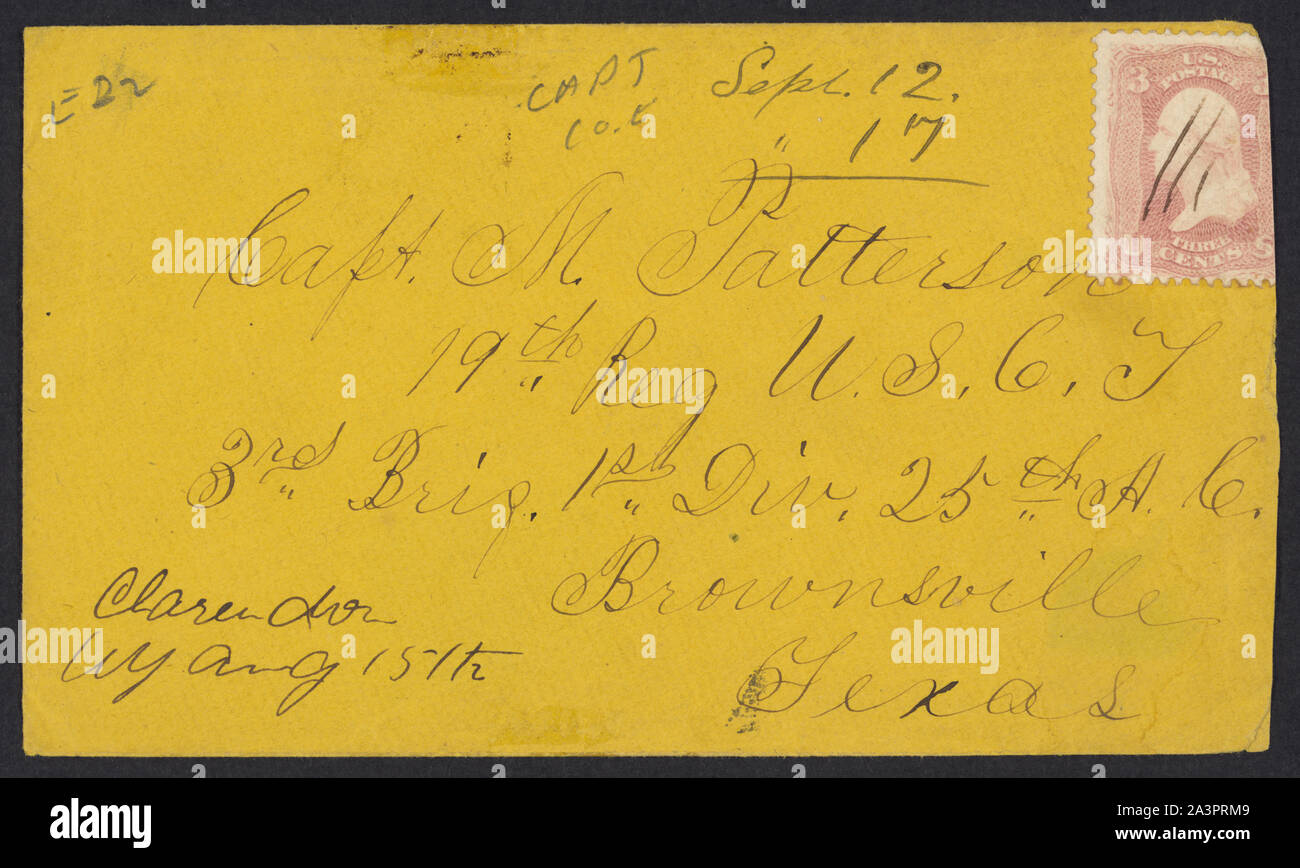 E 22
CAPT
Co. E
Sept. 12.
" 17
3 U.S. POSTAGE 3
THREE CENTS
Capt. M. Patterson
19th Reg U. S. C. T
3rd Brig. 1st Div. 25th A. C.
Brownsville
Texas
Clarendon
NY Aug 15th
alamy
Image ID: 2A3PRM9
www.alamy.com